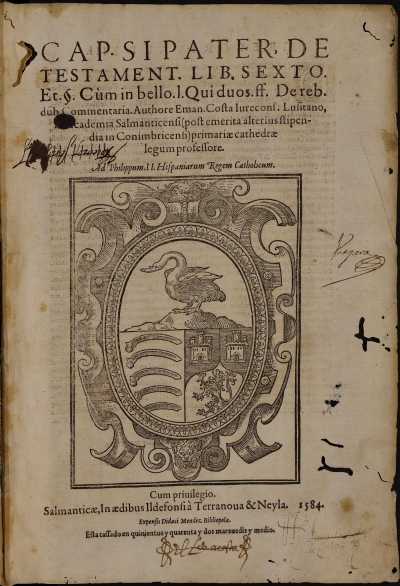 CAP. SI PATER. DE
TESTAMENT. LIB. SEXTO.
Et. §. Cùm in bello. l. Qui duos. ff. De reb.
dub. Commentaria. Authore Eman. Costa Iurecons. Lusitano,
Academia Salmanticensi (post emerita alterius stipen-
dia in Conimbricensi) primariæ cathedræ
legum professore.
Ad Philippum. II. Hispaniarum Regem Catholicum.
Vergara
Cum priuilegio.
Salmanticæ, In ædibus Ildefonsi à Terranoua & Neyla. 1584.
Expensis Didaci Mendez. Bibliopola.
Esta tassado en quinientos y quarenta y dos marauedis y medio.